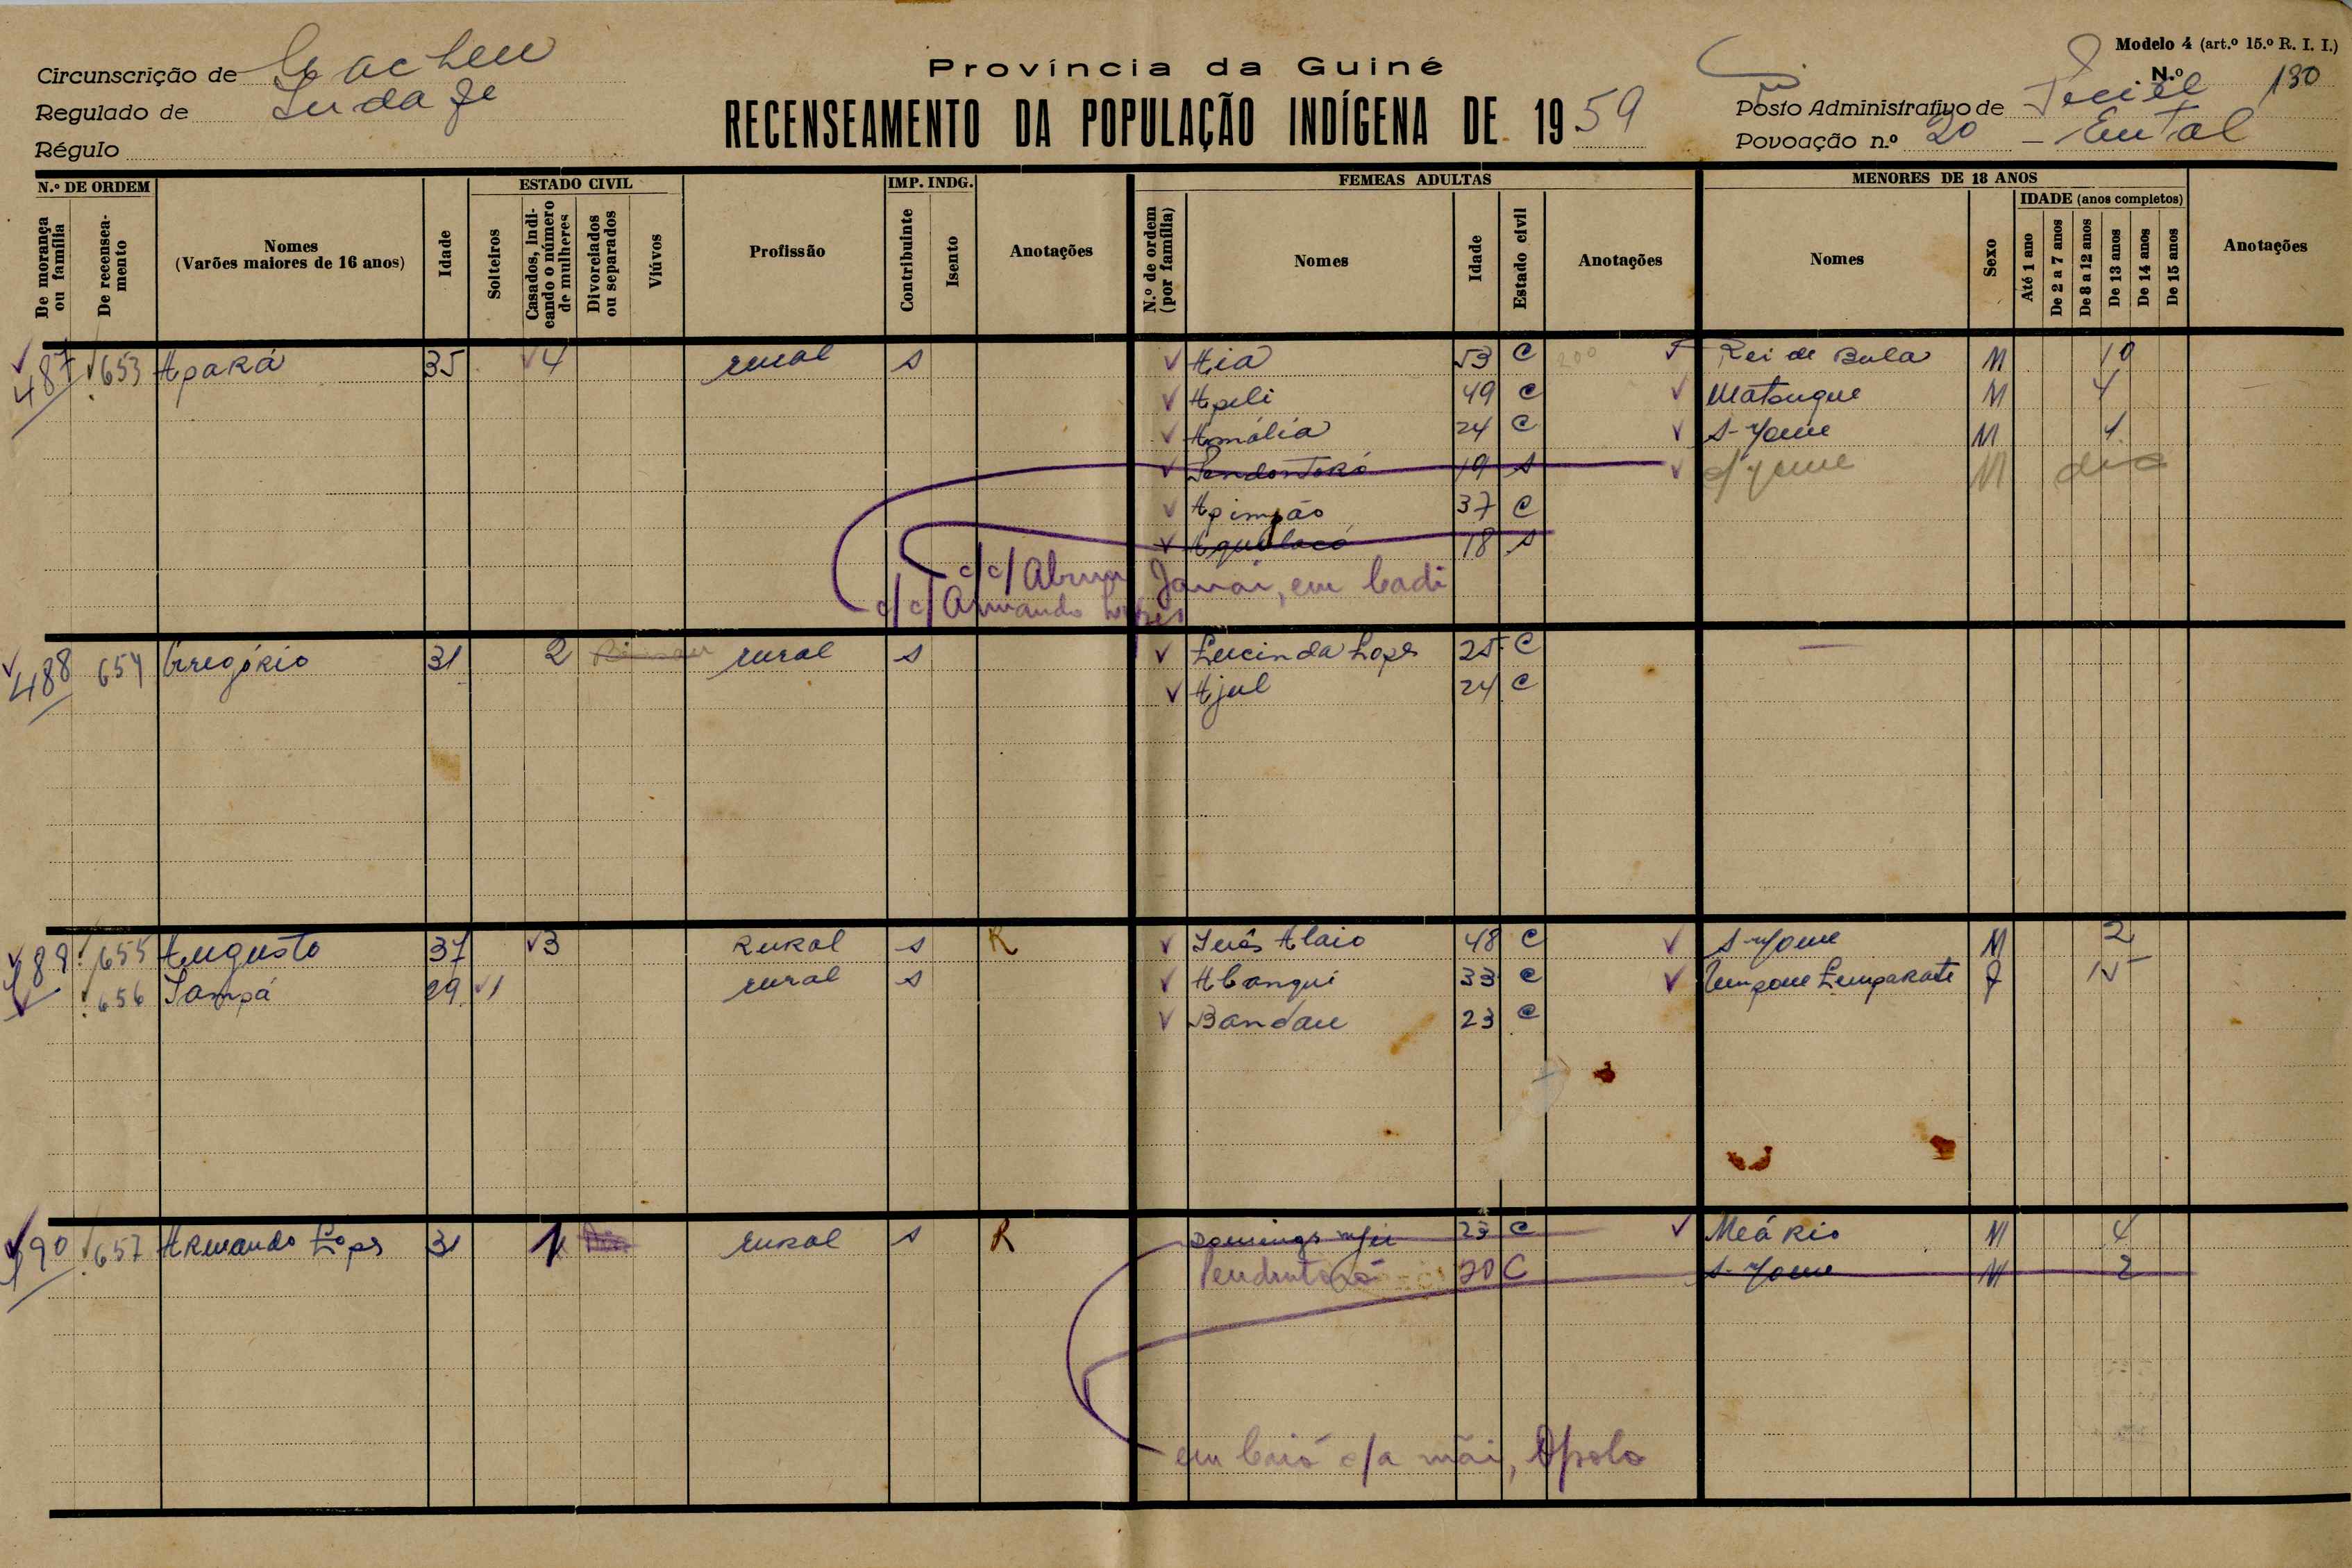 Modelo 4 (art.º 15.º R. I. I.)
Circunscrição de Cacheu
Província da Guiné
N.º 130
Regulado de
RECENSEAMENTO DA POPULAÇÃO INDÍGENA DE 1959
Posto Administrativo de
Régulo
Povoação n.º 20 -
N.º DE ORDEM
De morança ou família
De recenseamento
Nomes
(Varões maiores de 16 anos)
Idade
ESTADO CIVIL
Solteiros
Casados, indicando o número de mulheres
Divorciados ou separados
Viúvos
Profissão
IMP. INDG.
Contribuinte
Isento
Anotações
FEMEAS ADULTAS
N.º de ordem (por família)
Nomes
Idade
Estado civil
Anotações
MENORES DE 18 ANOS
Nomes
Sexo
IDADE (anos completos)
Até 1 ano
De 2 a 7 anos
De 8 a 12 anos
De 13 anos
De 14 anos
De 15 anos
Anotações
487 653 Apará 35 4 rural s Aia 53 C 200 Rei de Bula M 10
Apeli 49 C Matouque M 4
Amália 24 C S-Nome M 1
19 s s/nome M
Apimpão 37 C
18 s
c/c/ Janai, em Cadi
c/c/ Armando Lopes
488 654 Gregório 31 2 rural s Lucinda Lopes 25 C
Ajul 24 C
489 655 Augusto 37 3 Rural s R Inês Alaio 48 C S-Nome M 2
656 Sampá 29 1 rural s Abangui 33 C
Bandau 23 C
490 657 Armando Lopes 31 1 Rural s R 23 C Meário M 4
20 C S-Nome M 2
em Caió c/a mãi, Apolo